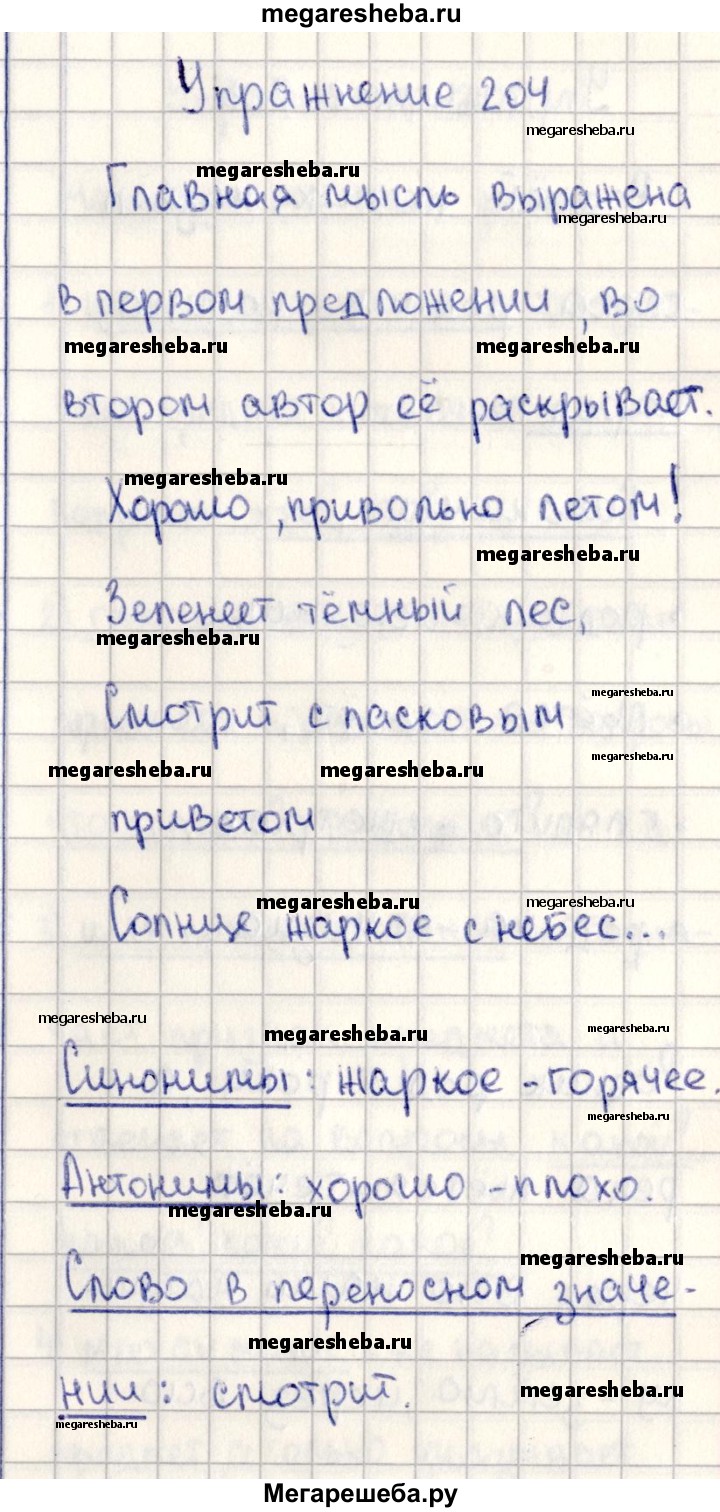 megaresheba.ru
Упражнение 204
megaresheba.ru
megaresheba.ru
Главная мысль выражена
megaresheba.ru
в первом предложении, во
megaresheba.ru megaresheba.ru
втором автор её раскрывает.
megaresheba.ru
Хорошо, привольно летом!
megaresheba.ru
Зеленеет тёмный лес,
megaresheba.ru
megaresheba.ru
Смотрит с ласковым
megaresheba.ru megaresheba.ru megaresheba.ru
приветом
megaresheba.ru megaresheba.ru
Солнце жаркое с небес...
megaresheba.ru megaresheba.ru megaresheba.ru
Синонимы: жаркое - горячее.
megaresheba.ru
Антонимы: хорошо - плохо.
megaresheba.ru
megaresheba.ru
Слово в переносном значе-
megaresheba.ru
нии: смотрит.
megaresheba.ru
megaresheba.ru
Мегарешеба.ру